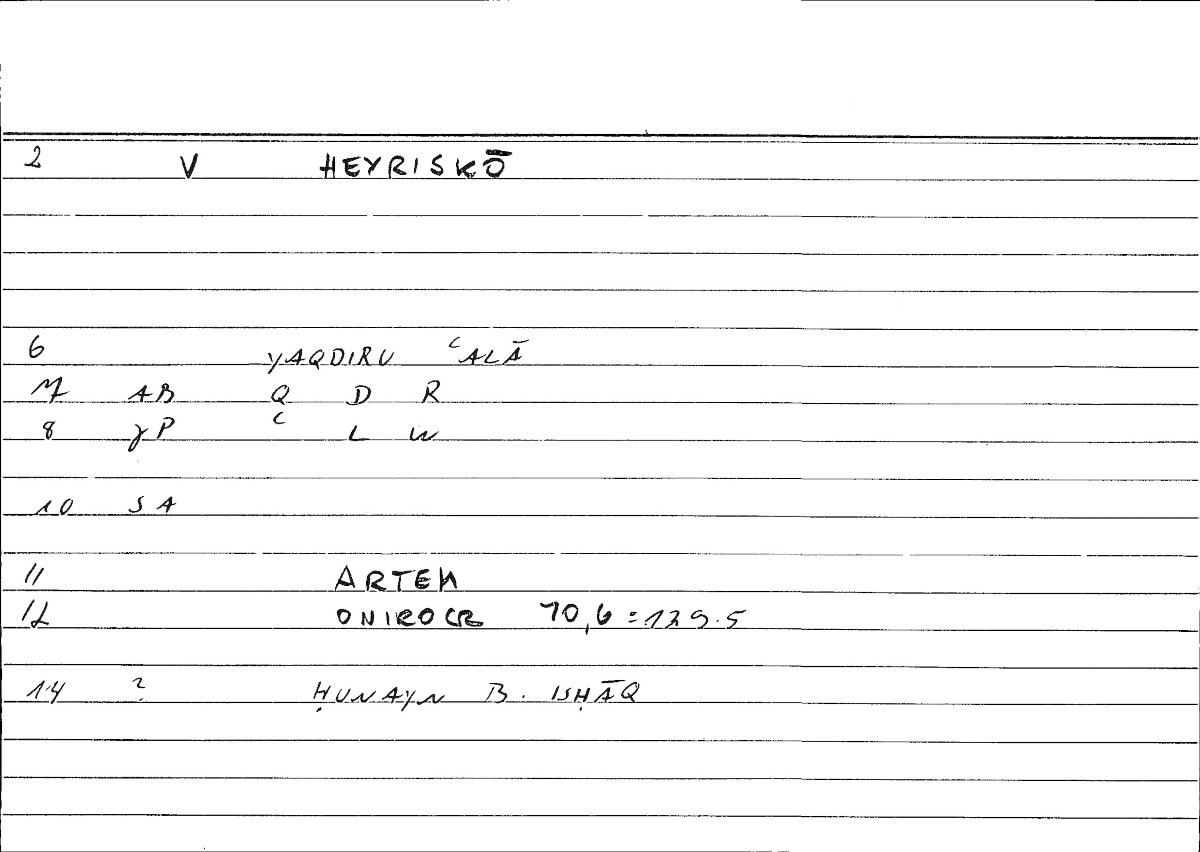 2 V HEYRISKŌ
6 YAQDIRU ʿALĀ
7 AB Q D R
8 γP ʿ L W
10 SA
11 ARTEM
12 ONIROCR 70,6 = 129.5
14 ? ḤUNAYN B. ISḤĀQ